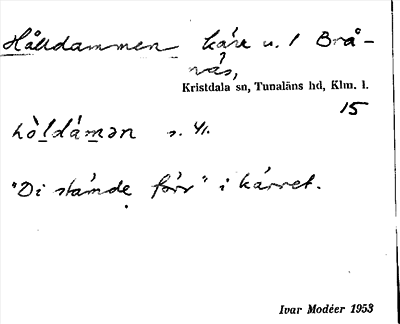 Hålldammen kärr u. 1 Brå-
näs,
Kristdala sn, Tunaläns hd, Klm. l.
15
hòldámən s. 41.
"Di stämde förr" i kärret.
Ivar Modéer 1953